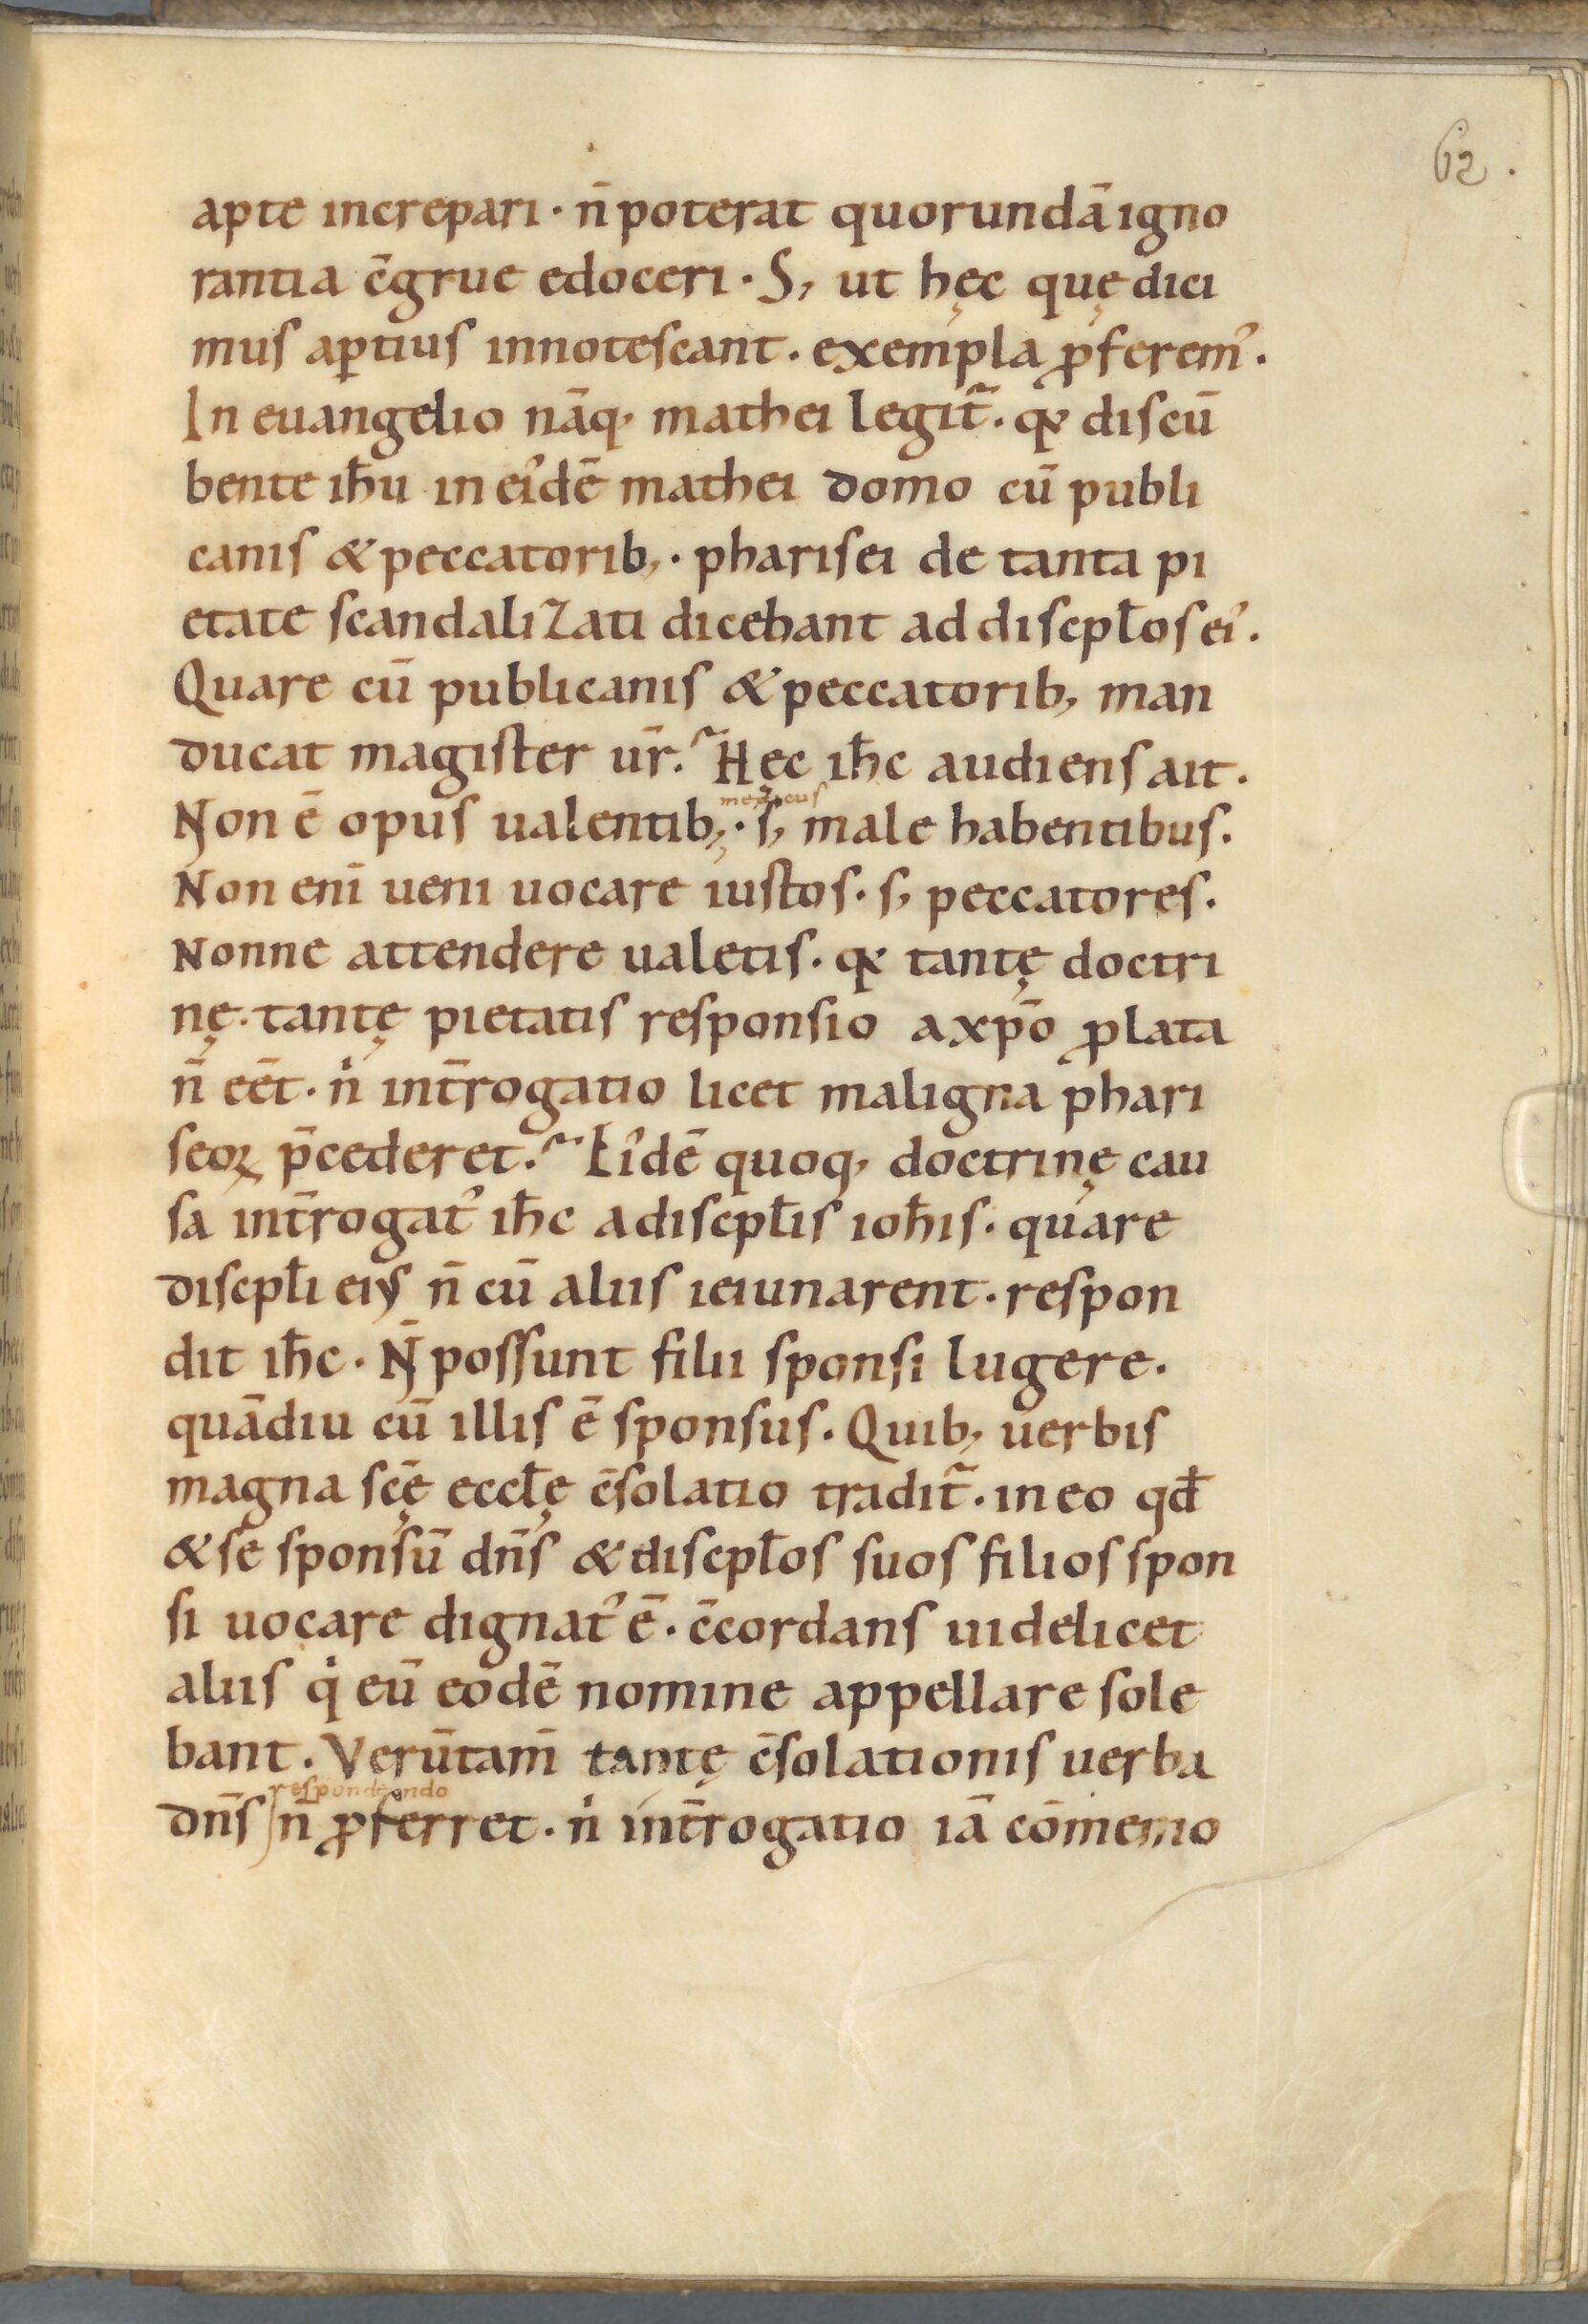 62.
apte increpari· n̄ poterat quorundā igno
rantia c̄grue edoceri· S, ut hęc quę dici
mus aptius innotescant· exempla ꝓferem᾽·
In euangelio nāq, mathei legit᷒· qđ discū
bente ihu̅ in ei᾽dē mathei domo cū publi
canis & peccatorib,· pharisei de tanta pi
etate scandalizati dicebant ad discpłos ei᾽·
Quare cū publicanis & peccatorib, man
ducat magister ur̄? Hęc ihc̅ audiens ait·
medicus
Non ē opus ualentib;· s, male habentibus·
Non enī ueni uocare iustos· s, peccatores·
Nonne attendere ualetis· qđ tantę doctri
nę· tantę pietatis responsio a xp̄o ꝓlata
n̄ eēt· nͥ int̄rogatio licet maligna phari
seoꝝ p̄cederet? Ei᾽dē quoq, doctrinę cau
sa int̄rogat᾽ ihc̅ a discpłis ioħis· quare
discpłi eiꝰ n̄ cū aliis ieiunarent· respon
dit ihc̅· N̄ possunt filii sponsi lugere·
quādiu cū illis ē sponsus· Quib, uerbis
magna sc̄ę eccłę c̄solatio tradit᷒· in eo qđ
& se sponsū dn̄s & discpłos suos filios spon
si uocare dignat᾽ ē· c̄cordans uidelicet
aliis qͥ eū eodē nomine appellare sole
bant· Verūtam̄ tantę c̄solationis uerba
respondendo
dn̄s n̄ ꝓferret· nͥ int̄rogatio iā cōmemo